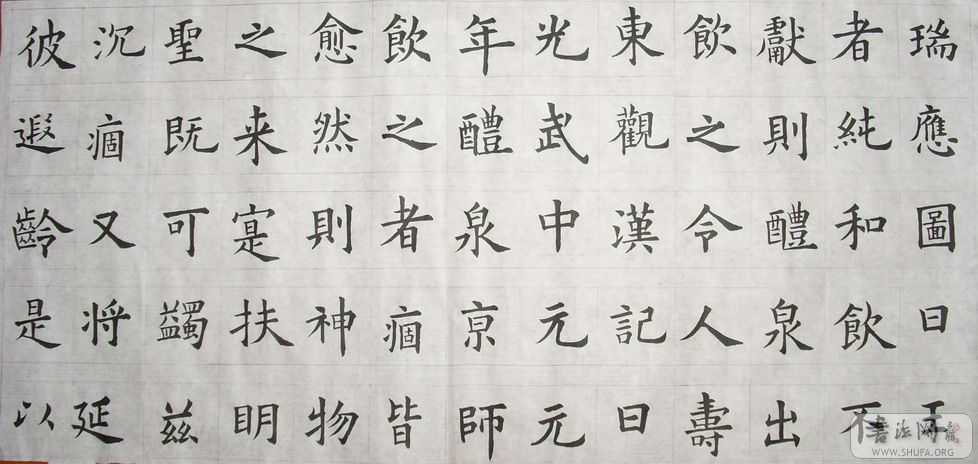 瑞應圖曰王
者純和飲不
獻則醴泉出
飲之令人壽
東觀漢記曰
光武中元元
年醴泉亰師
飲之者痼皆
愈然則神物
之来寔扶眀
聖既可蠲兹
沉痼又将延
彼遐齡是以
書法网
WWW.SHUFA.ORG